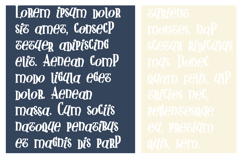 Lorem ipsum dolor
sit amet, consecp
tetuer adipiscing
elit. Aenean comp
modo ligula eget
dolor. Aenean
massa. Cum sociis
natoque penatibus
et magnis dis parp
turient
montes, nap
scetur ridiculus
mus. Donec
quam felis, ulp
tricies nec,
pellentesque
eu, pretium
quis, sem.